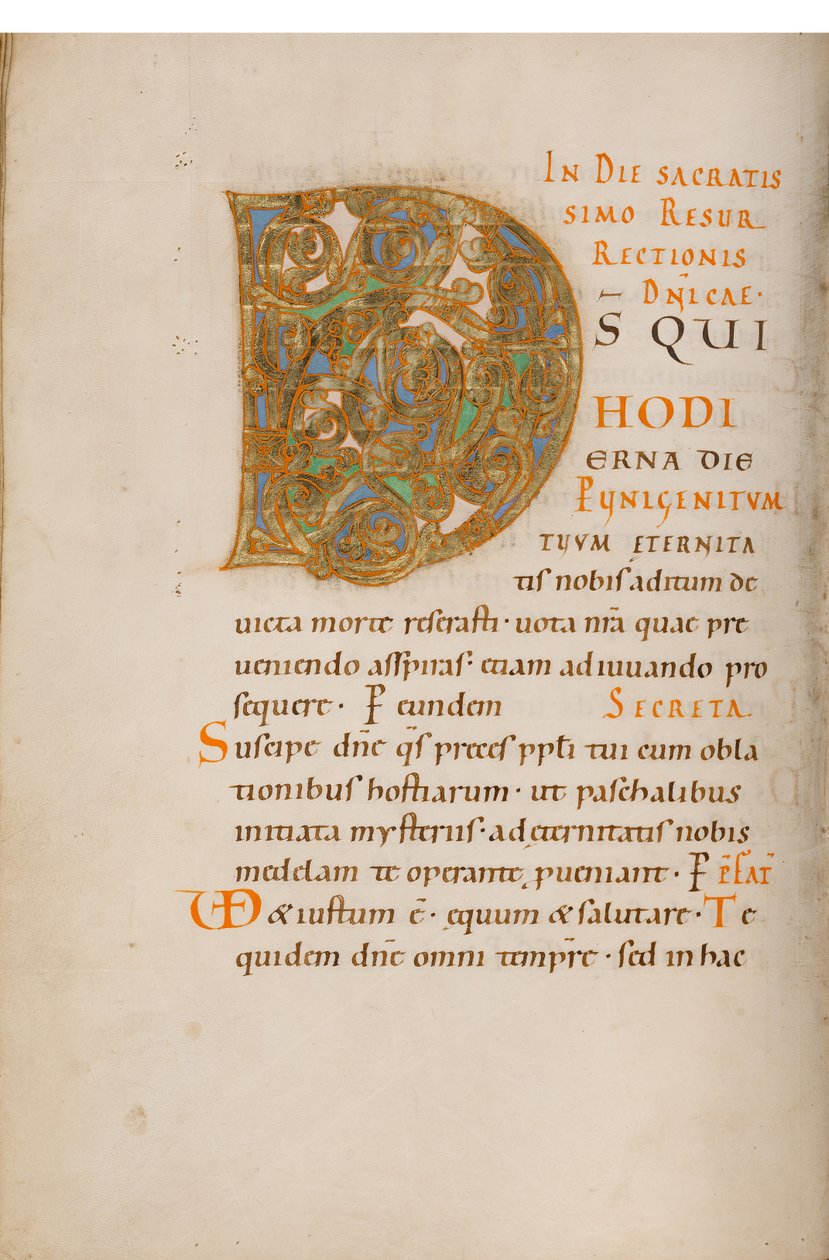 IN DIE SACRATIS
SIMO RESUR
RECTIONIS
DN̄ICAE·
D S QUI
HODI
ERNA DIE
P UNIGENITUM
TUUM ĘTERNITA
tis nobis aditum de
uicta morte reserasti· uota nr̄a quae pre
ueniendo asspiras· etiam adiuuando pro
sequere· P eundem SECRETA
Suscipe dn̄e q̄s preces pp̄li tui cum obla
tionibus hostiarum· ut paschalibus
initiata mysteriis· ad ęternitatis nobis
medelam te operante, ꝑueniant· P P̄FAT̄
VD & iustum ē· ęquum & salutare· Te
quidem dn̄e omni temp̄re· sed in hac